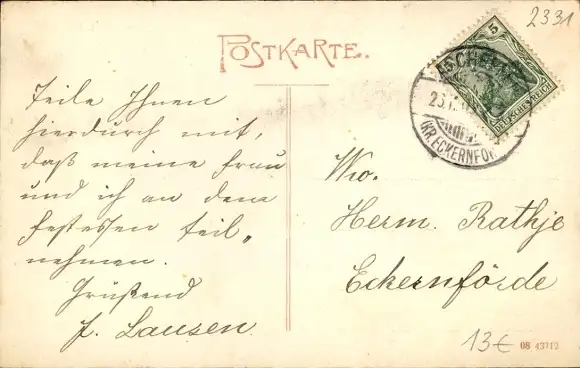 2331
POSTKARTE.
5
DEUTSCHES REICH
ASCHEFFEL
(KR. ECKERNFÖRDE)
Teile Ihnen
hierdurch mit,
daß meine Frau
und ich an dem
Festessen teil„
nehmen.
Grüßend
J. Lausen
Wo.
Herm. Rathje
Eckernförde
13€
08 43712